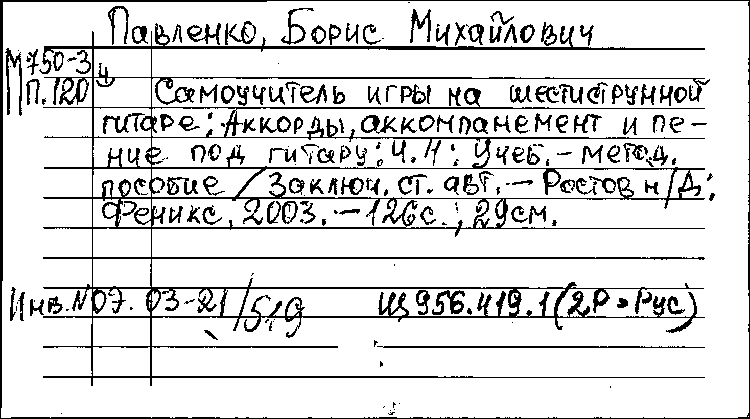 Павленко, Борис Михайлович
М750-3
П.120 4
Самоучитель игры на шестиструнной
гитаре: Аккорды, аккомпанемент и пе-
ние под гитару: Ч.4: Учеб.-метод.
пособие / Заключ. ст. авт. — Ростов н/Д:
Феникс, 2003. — 126с.; 29см.
Инв.N07. 03-21/519 Щ956.419.1(2Р=Рус)